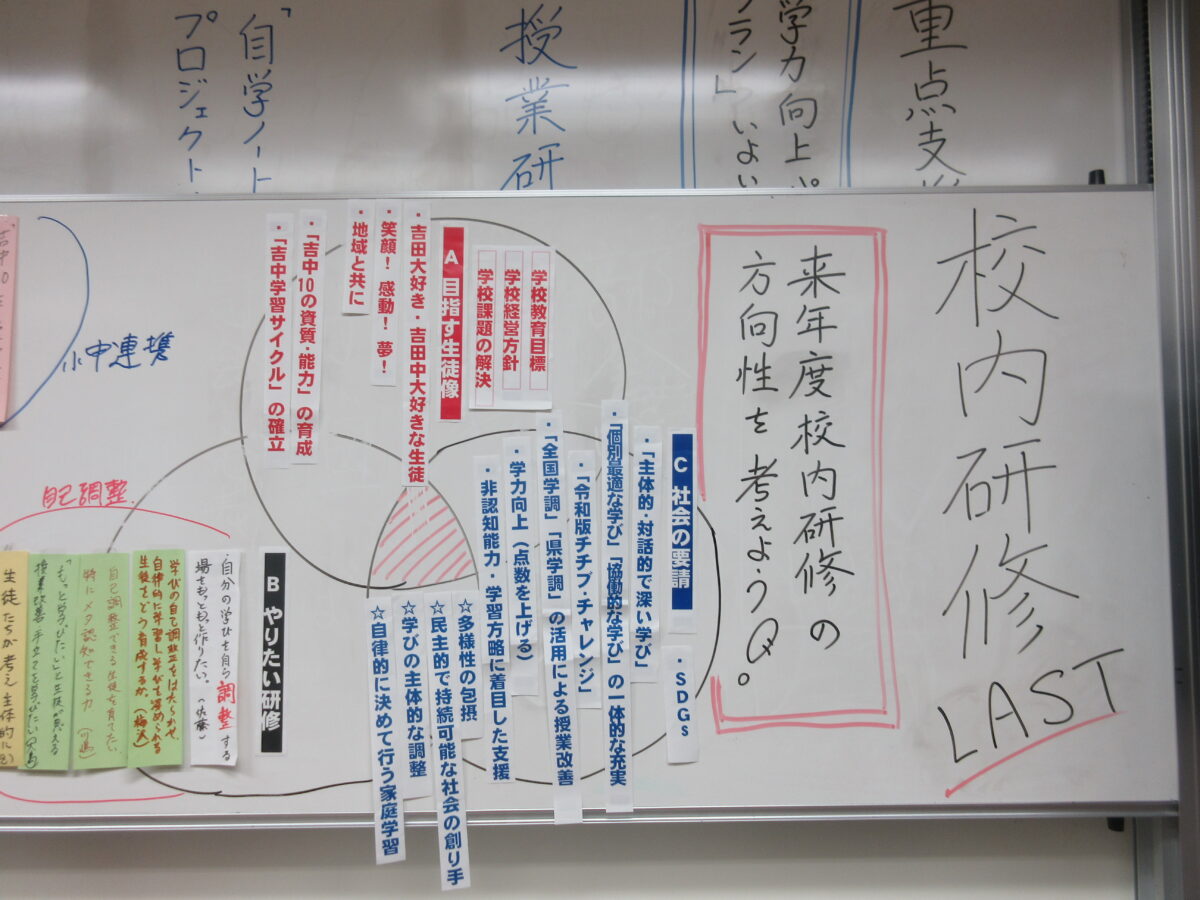 重点支
学力向上
プラン」いよい
授業研
「自学ノート
プロジェクト
校内研修
LAST
来年度校内研修の
方向性を考えようQ。
学校教育目標
学校経営方針
学校課題の解決
A 目指す生徒像
・吉田大好き・吉田中大好きな生徒
・笑顔！感動！夢！
・地域と共に
・「吉中10の資質・能力」の育成
・「吉中学習サイクル」の確立
C 社会の要請
・SDGs
・「主体的・対話的で深い学び」
・「個別最適な学び」「協働的な学び」の一体的な充実
・「令和版チチブ・チャレンジ」
・「全国学調」「県学調」の活用による授業改善
・学力向上（点数を上げる）
・非認知能力・学習方略に着目した支援
☆多様性の包摂
☆民主的で持続可能な社会の創り手
☆学びの主体的な調整
☆自律的に決めて行う家庭学習
B やりたい研修
・自分の学びを自ら調整する
場をもっともっと作りたい。（佐藤）
学びの自己調整をはたらかせ
自律的に学習し学びを深められる
生徒をどう育成するか。
自己調整できる生徒を育てたい
特にメタ認知できる力
「もっと学びたい」と生徒が思える
授業改善 手立てを学びたい
生徒たちが考え主体的に
自己調整
小中連携